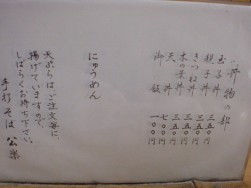 丼物の部
玉子丼 三五〇円
親子丼 三五〇円
きつね丼 三五〇円
木の葉丼 三五〇円
天丼 七〇〇円
御飯 一〇〇円
にゅうめん
天ぷらはご注文毎に
揚げていますので
しばらくお待ち下さい。
手打そば